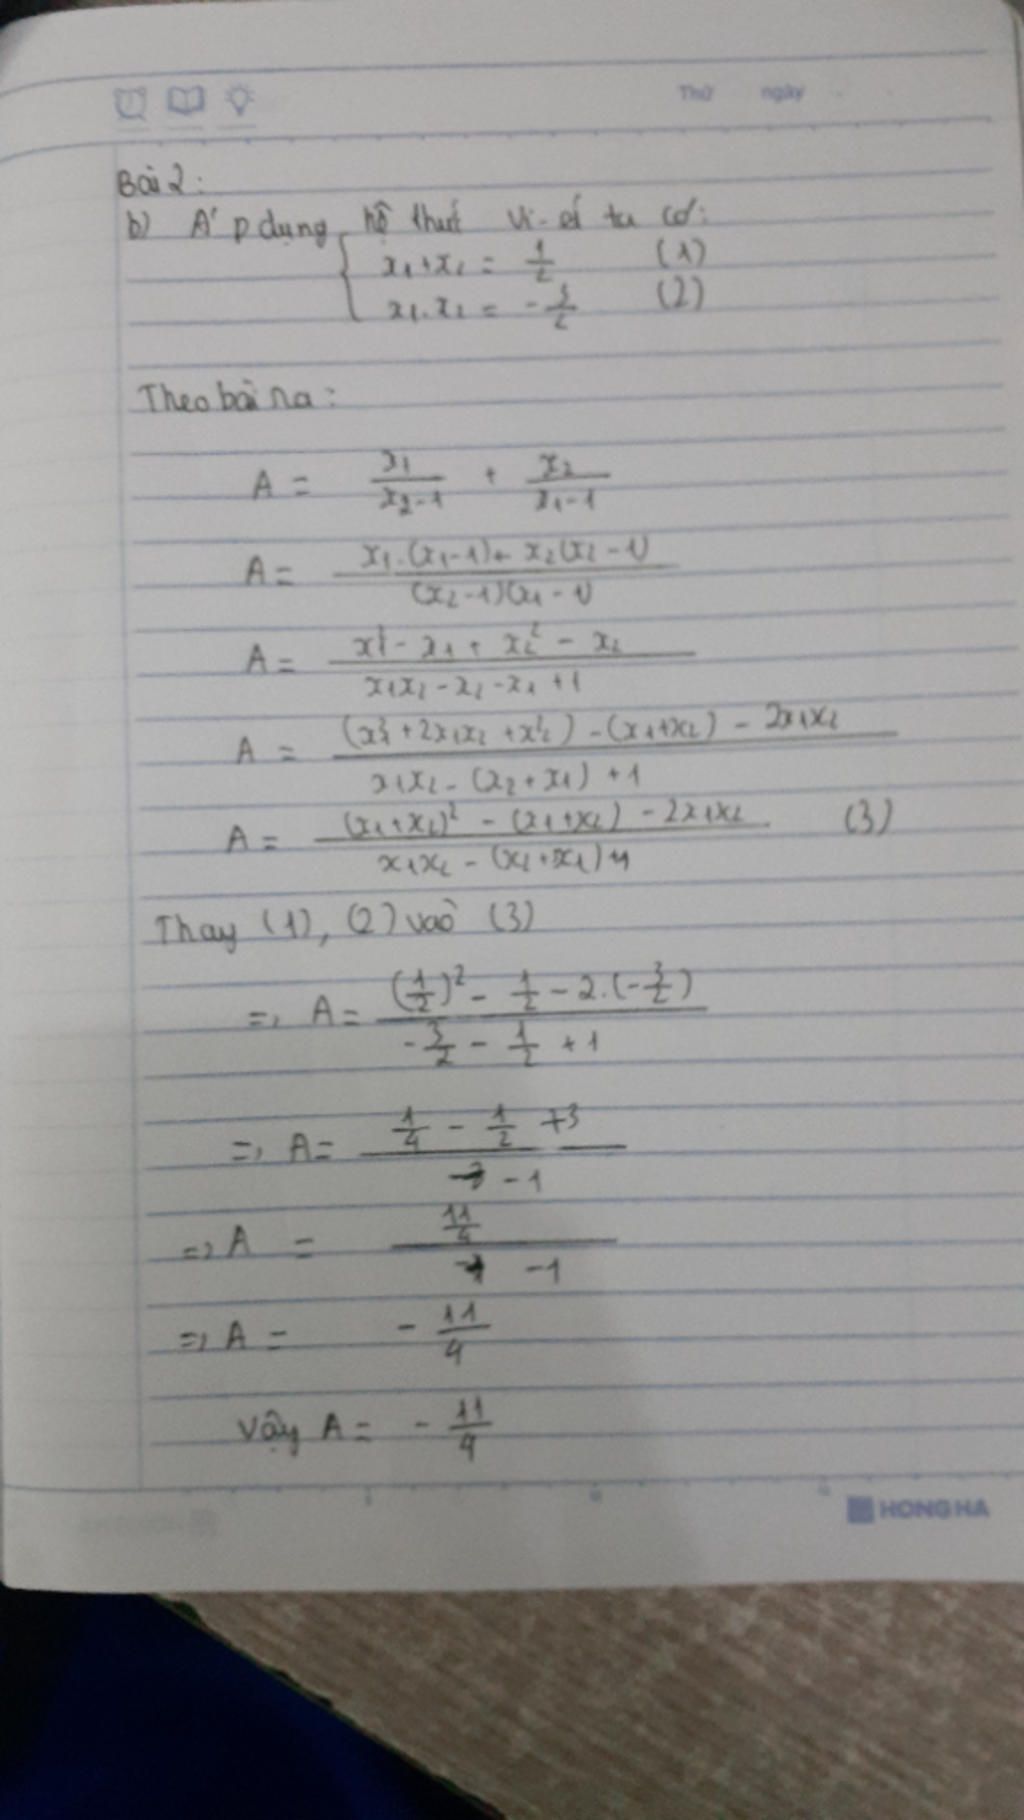 Thứ ngày
Bài 2:
b) Áp dụng hệ thức Vi-ét ta có:
x₁+x₂ = 1/2 (1)
x₁.x₂ = -3/2 (2)
Theo bài ra:
A = x₁/(x₂-1) + x₂/(x₁-1)
A = (x₁.(x₁-1)+ x₂(x₂-1))/((x₂-1)(x₁-1))
A = (x₁² - x₁ + x₂² - x₂)/(x₁x₂ - x₂ - x₁ +1)
A = ((x₁² + 2x₁x₂ + x₂²) - (x₁+x₂) - 2x₁x₂)/(x₁x₂ - (x₂+x₁) +1)
A = ((x₁+x₂)² - (x₁+x₂) - 2x₁x₂)/(x₁x₂ - (x₂+x₁)+1) (3)
Thay (1), (2) vào (3)
=> A = ((1/2)² - 1/2 - 2.(-3/2))/(-3/2 - 1/2 + 1)
=> A = (1/4 - 1/2 +3)/(-1)
=> A = (11/4)/(-1)
=> A = - 11/4
Vậy A = - 11/4
HONG HA